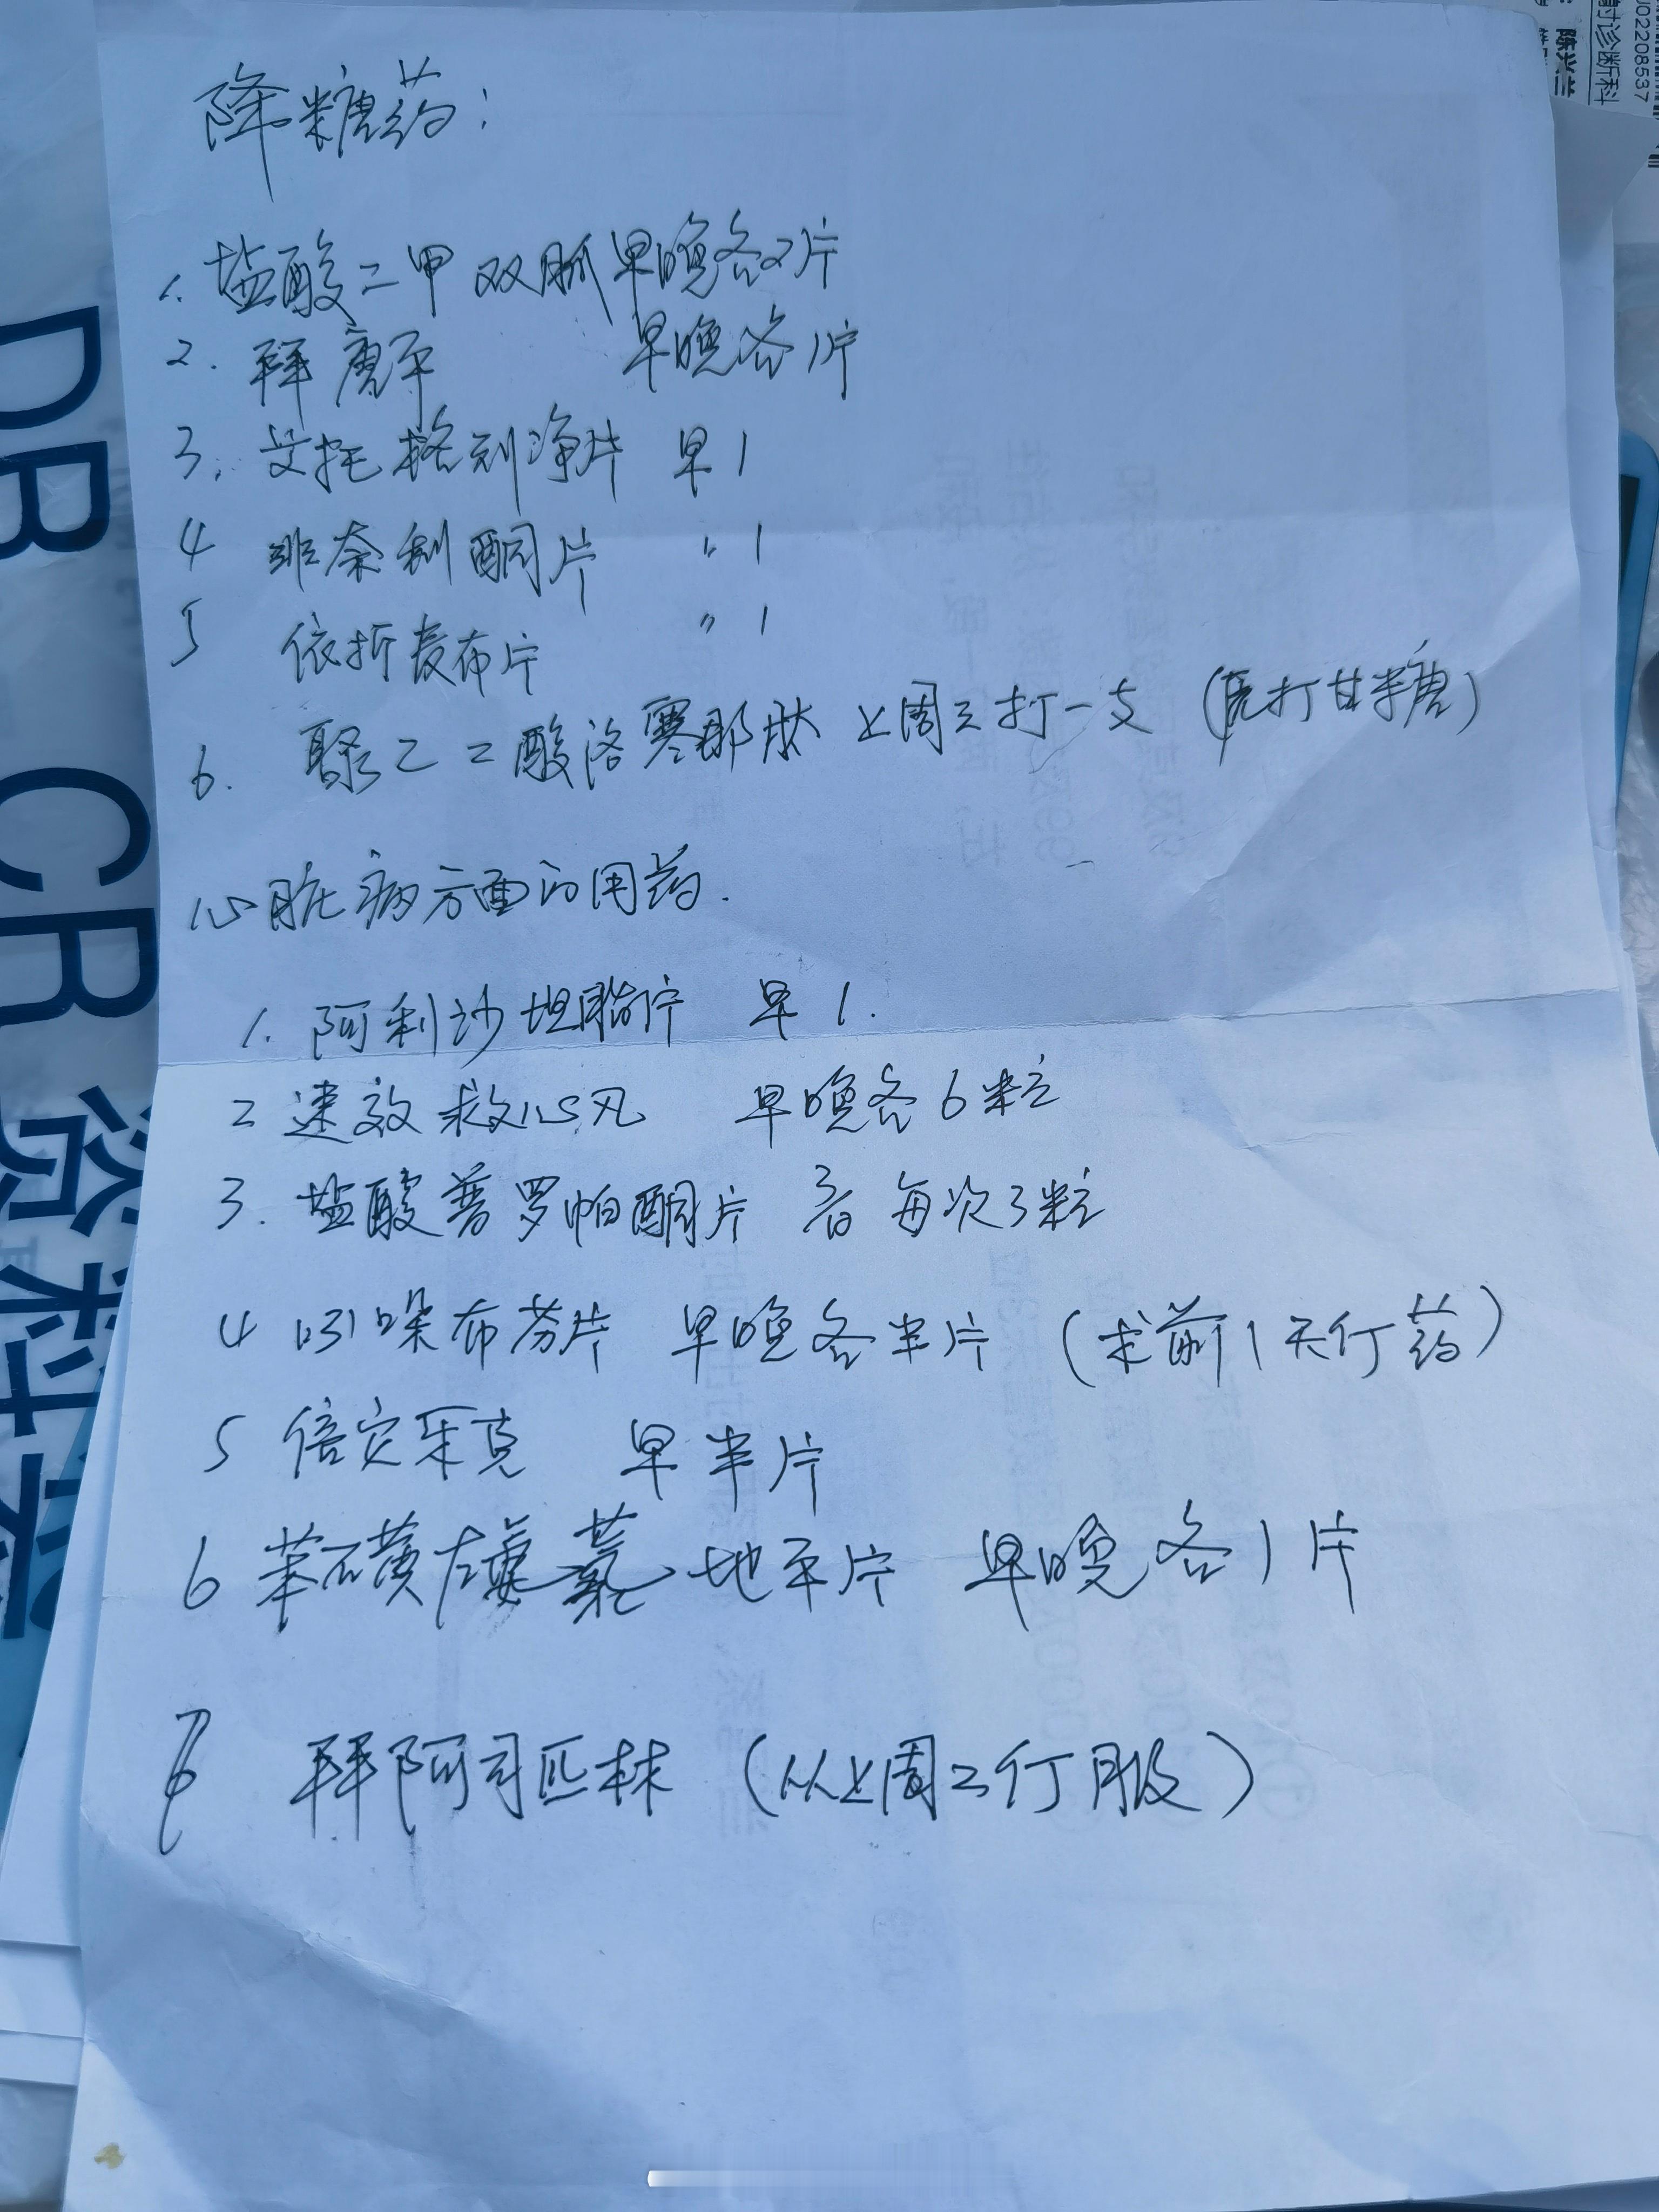 降糖药:
1. 盐酸二甲双胍 早晚各2片
2. 拜唐平 早晚各1片
3. 艾托格列净片 早1
4 非奈利酮片 〃 1
5 依折麦布片 〃 1
6. 聚乙二醇洛塞那肽 上周三打一支 (打甘糖)
心脏病方面的用药.
1. 阿利沙坦酯片 早1.
2 速效救心丸 早晚各6粒
3. 盐酸普罗帕酮片 每次3粒
4 吲哚布芬片 早晚各半片 (术前1天停药)
5 倍它乐克 早半片
6 苯磺左氨氯地平片 早晚各1片
7 拜阿司匹林 (从上周二停服)
DR CR 资料
J02208537
陈兴兰
射诊断科